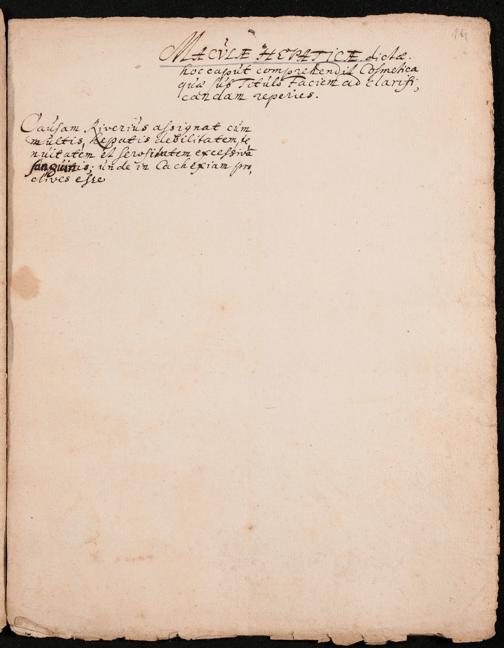 MACULÆ HEPATICÆ dictæ.
hoc caput comprehendit Cosmetica
quæ sub Titulo Faciem ad clarifi,
candam reperies.
Causam Riverius assignat cum
multis, hepatis debilitatem, te
nuitatem et serositatem excessivã
sanguinis, unde in Cachexiam pro,
clives esse